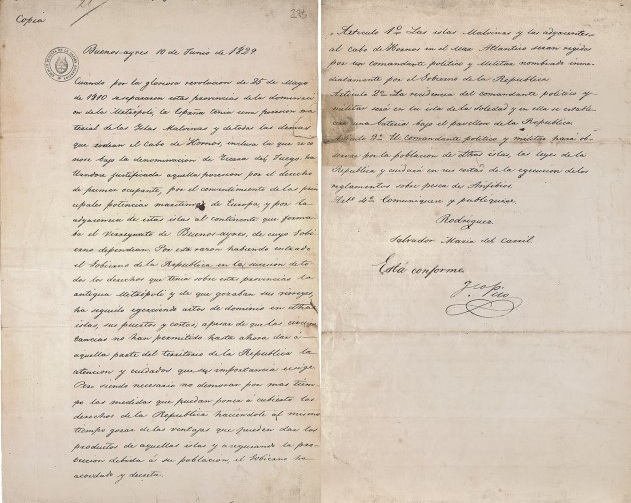 Copia
21
Buenos-ayres 10 de Junio de 1829
Cuando por la gloriosa revolucion de 25 de Mayo
de 1810 se separaron estas provincias de la domina-
cion de la Metrópoli, la España tenia una posesion ma-
terial de las Islas Malvinas y de todas las demas
que rodean el Cabo de Hornos, inclusa la que se co-
noce bajo la denominacion de Tierra del Fuego: ha-
llandose justificada aquella posesion por el derecho
de primer ocupante, por el consentimiento de las prin-
cipales potencias maritimas de Europa, y por la
adyacencia de estas islas al continente que forma-
ba el Virreynato de Buenos-ayres, de cuyo Gobi-
erno dependian. Por esta razon habiendo entrado
el Gobierno de la Republica en la sucesion de to-
dos los derechos que tenia sobre estas provincias la
antigua Metrópoli y de que gozaban sus vireyes,
ha seguido egerciendo actos de dominio en dichas
islas, sus puertos y costas; apesar de que las circuns-
tancias no han permitido hasta ahora dar á
aquella parte del territorio de la Republica la
atencion y cuidados que su importancia exige.
Pero siendo necesario no demorar por mas tiem-
po las medidas que puedan poner á cubierto los
derechos de la Republica haciendole al mismo
tiempo gozar de las ventajas que pueden dar los
productos de aquellas islas y asegurando la pro-
teccion debida á su poblacion; el Gobierno ha
acordado y decreta.
Articulo 1º Las islas Malvinas y las adyacentes
al cabo de Hornos en el Mar Atlantico seran regidas
por un comandante politico y Militar nombrado inme-
diatamente por el Gobierno de la Republica
Articulo 2º La residencia del comandante politico y
militar será en la isla de la Soledad y en ella se estable-
cera una bateria bajo el pavellon de la Republica
Articulo 3º El comandante politico y militar hará ob-
servar por la poblacion de dichas islas, las leyes de la
Republica y cuidará en sus costas de la egecucion de los
reglamentos sobre pesca de Anfibios.
Artº 4º Comuniquese y publiquese.
Rodriguez
Salvador Maria del Carril.
Está conforme
Pico